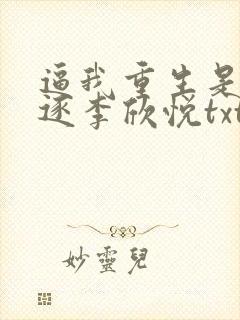 逼我重生是
逐李欣悦txt
妙靈兒